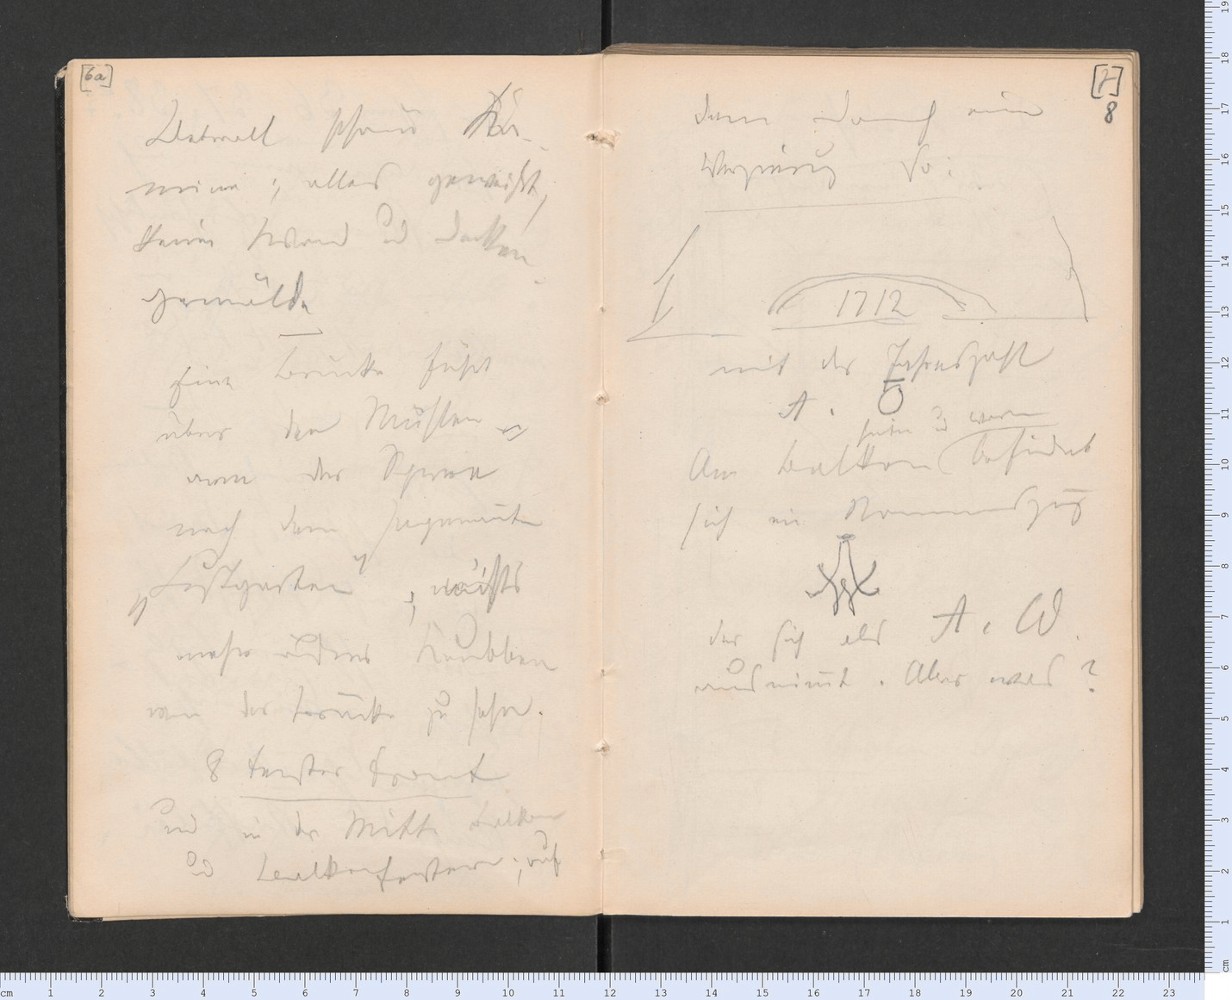 [6a]
Ueberall schöne Ka-
mine; alles geweißt,
keine Wand und Decken-
gemälde
Eine Brücke führt
über den Mühlen
arm der Spree
nach dem sogenannten
„Lustgarten“; nichts
mehr und der
von der Brücke zu sehn.
8 Fenster Front
und in der Mitte Balkon
und Balkonfenster; auf
[7]
8
dem Dach eine
Verzierung so:
1712
mit der Jahreszahl
A.
hinten und vorn
Am Balkon befindet
sich ein Namenszug
der sich als A. W.
ausnimmt. Aber was?